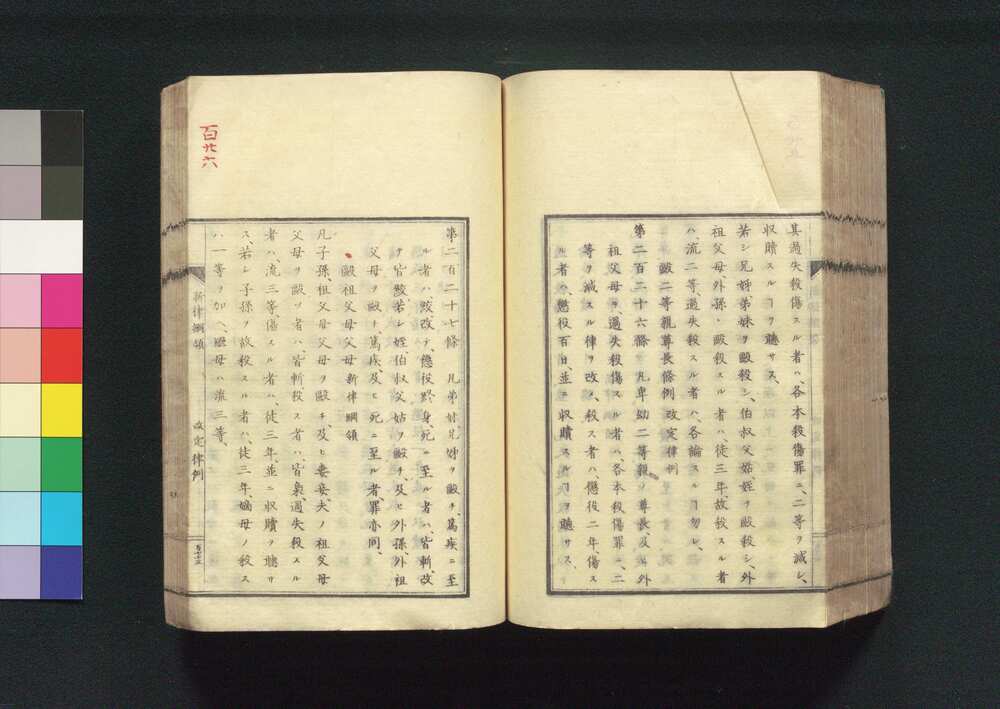 其過失殺傷スル者ハ、各本殺傷罪ニ、二等ヲ減シ、
収贖スルヿヲ聴サス、
若シ兄姉弟妹ヲ殴殺シ、伯叔父姑姪ヲ殴殺シ、外
祖父母、外孫ヲ殴殺スル者ハ、徒三年、故殺スル者
ハ、流二等、過失殺スル者ハ、各論スルヿ勿レ、
殴二等親尊長條例改定律例
第二百二十六條 凡卑幼二等親ノ尊長、及ヒ外
祖父母ヲ過失殺傷スル者ハ、各本殺傷罪ニ、二
等ヲ減スル律ヲ改メ、殺ス者ハ懲役二年、傷ス
ル者ハ、懲役百日、並ニ収贖スルヿヲ聴サス、
第二百二十七條 凡弟妹兄姉ヲ殴チ、篤疾ニ至
ル者ハ絞改テ、懲役終身死ニ至ル者ハ皆斬、改
テ皆絞若シ姪伯叔父姑ヲ殴チ、及ヒ外孫、外祖
父母ヲ殴チ篤疾、及ヒ死ニ至ル者、罪亦同、
殴祖父母父母新律綱領
凡子孫、祖父母父母ヲ殴チ、及ヒ妻妾、夫ノ祖父母
父母ヲ殴ツ者ハ、皆斬殺ス者ハ、皆梟、過失殺スル
者ハ、流三等、傷スル者ハ、徒三年、並ニ収贖ヲ聴サ
ス、若シ子孫ヲ故殺スル者ハ、徒三年、嫡母ノ殺ス
ハ一等ヲ加ヘ、継母ハ流三等、
新律綱領 改定律例
百廿六